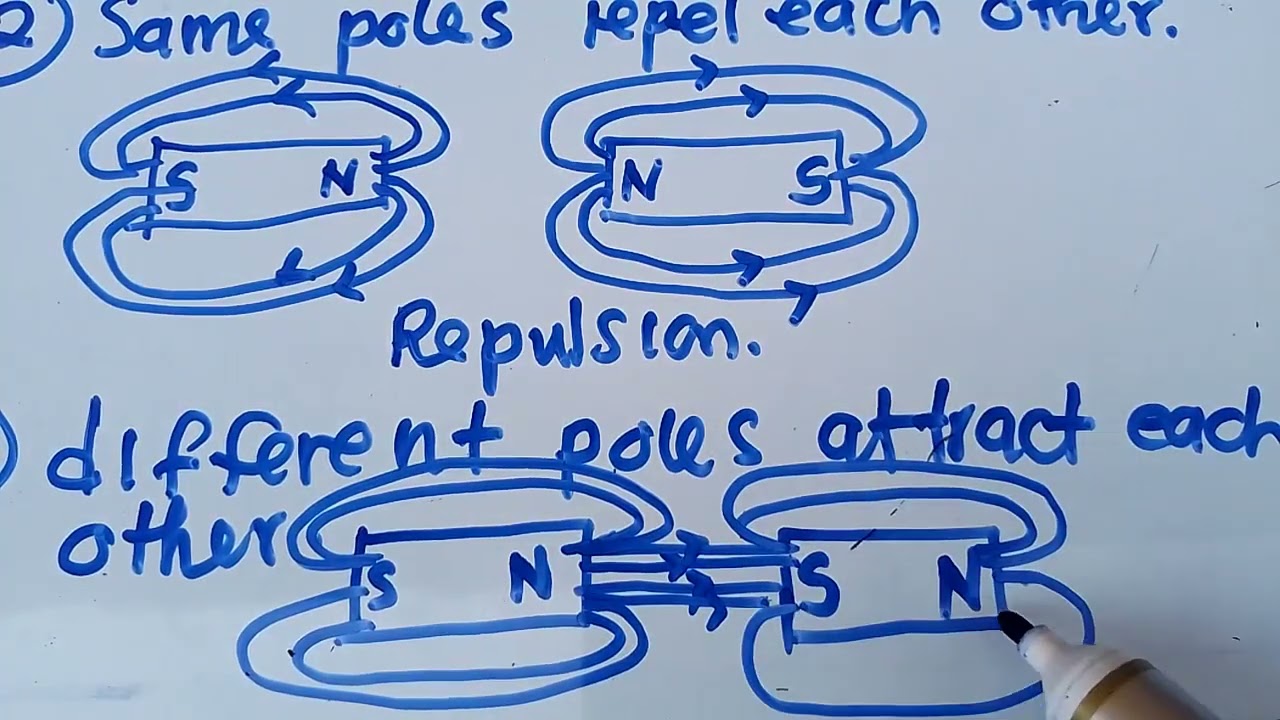 2) Same poles repel each other.
S N N S
Repulsion.
) different poles attract each
other
S N S N